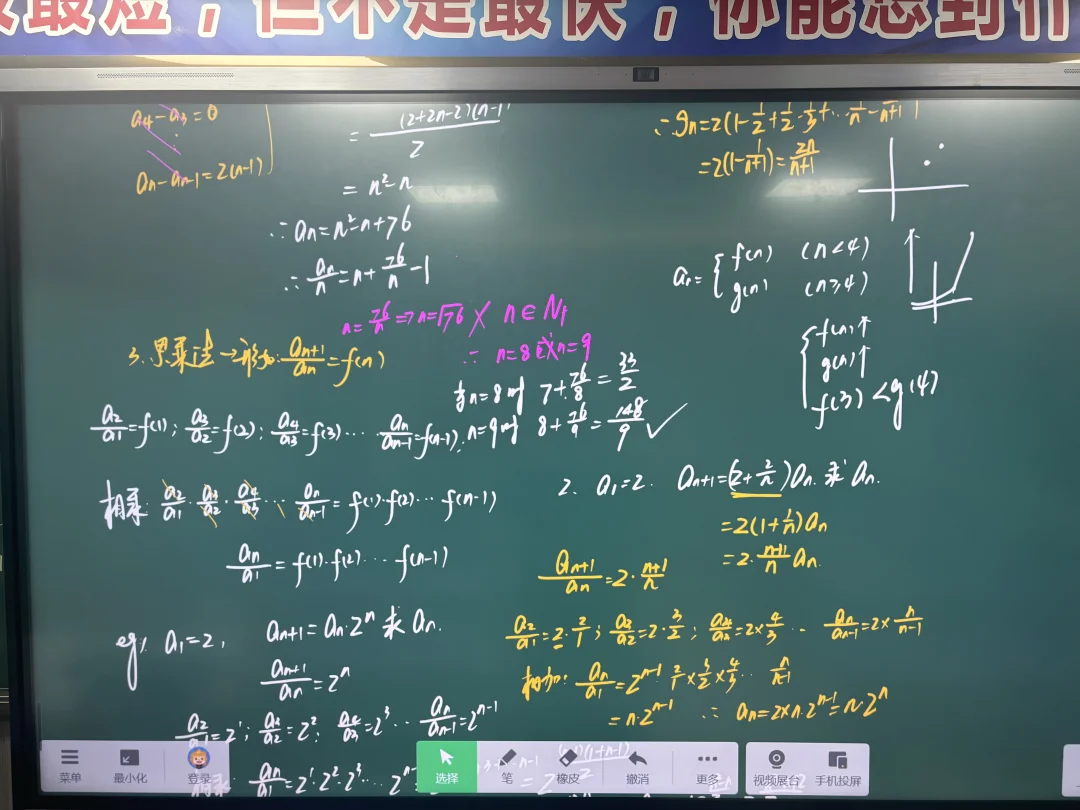 最短，但不是最快，你能想到什
a₄-a₃=0
⋮
aₙ-aₙ₋₁=2(n-1)
= (2+2n-2)(n-1)/2
= n²-n
∴ aₙ=n²-n+76
∴ aₙ/n=n+76/n-1
n=76/n ⇒ n=√76 × n∈N₊
∴ n=8或n=9
当n=8时 7+76/8=33/2
n=9时 8+76/9=148/9 ✓
3.累乘法→形如:aₙ₊₁/aₙ=f(n)
a₂/a₁=f(1);a₃/a₂=f(2);a₄/a₃=f(3)⋯aₙ/aₙ₋₁=f(n-1).
相乘:a₂/a₁·a₃/a₂·a₄/a₃⋯aₙ/aₙ₋₁=f(1)·f(2)⋯f(n-1)
aₙ/a₁=f(1)·f(2)⋯f(n-1)
eg1. a₁=2, aₙ₊₁=aₙ·2ⁿ 求aₙ.
aₙ₊₁/aₙ=2ⁿ
=2¹; =2²; =2³⋯aₙ/aₙ₋₁=2ⁿ⁻¹
aₙ/a₁=2¹·2²·2³⋯
∴ gₙ=2(1-1/2+1/2-1/3+⋯1/n-1/n+1)
=2(1-1/n+1)=2n/n+1
aₙ={f(n) (n<4)
g(n) (n≥4)
{f(n)↑
g(n)↑
f(3)<g(4)
2. a₁=2. aₙ₊₁=(2+2/n)aₙ.求aₙ.
=2(1+1/n)aₙ
=2·n+1/n aₙ.
aₙ₊₁/aₙ=2·n+1/n
a₂/a₁=2·2/1; a₃/a₂=2·3/2; =2×4/3⋯aₙ/aₙ₋₁=2×n/n-1
相加:aₙ/a₁=2ⁿ⁻¹ 2/1×3/2×4/3⋯n/n-1
=n·2ⁿ⁻¹ ∴ aₙ=2×n·2ⁿ⁻¹=n·2ⁿ
菜单
最小化
登录
选择
笔
橡皮
撤消
更多
视频展台
手机投屏